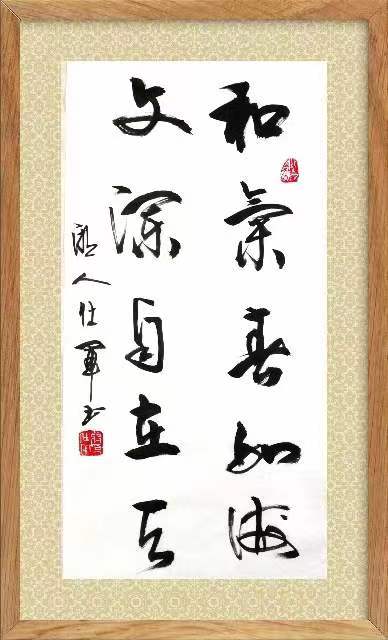 和氣春如海
文深自在天
人仕軍书